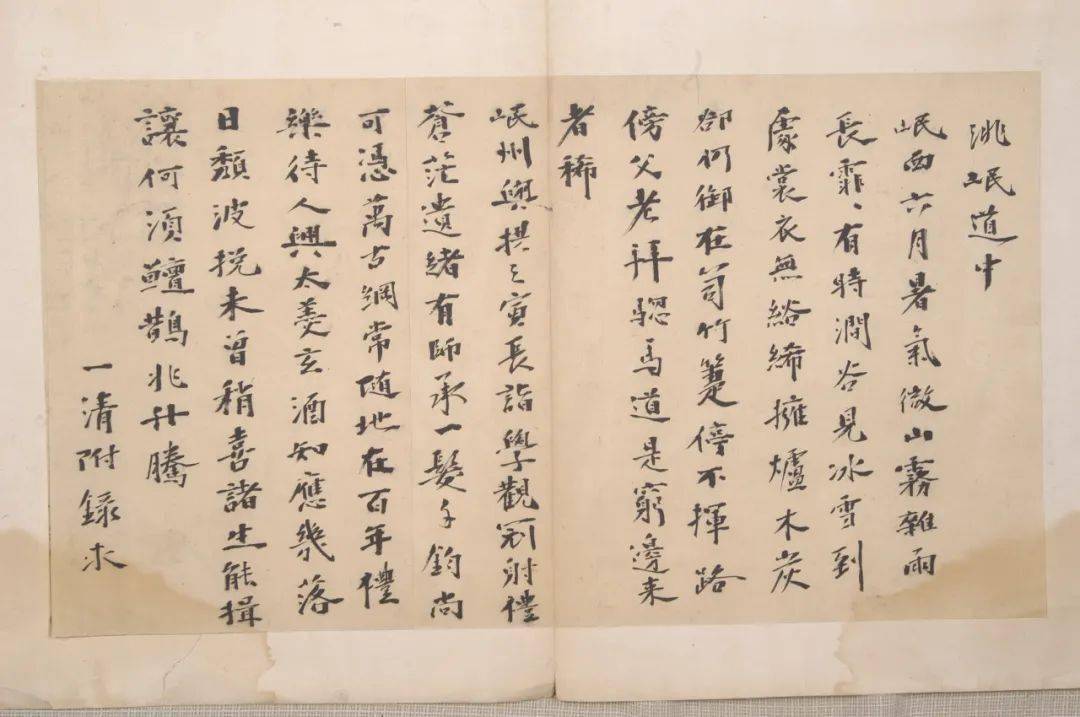 洮岷道中
岷西六月暑氣微山霧雜雨
長霏〻有時澗谷見冰雪到
處裳衣無綌絺擁爐木炭
卻仍御在笥竹箑傍不揮路
傍父老拜驄馬道是窮邊来
者稀
岷州與拱之寅長詣學觀冠射禮
蒼茫遺緒有師承一髮千鈞尚
可憑萬古綱常随地在百年禮
樂待人興太羮玄酒知應幾落
日頹波挽未曾稍喜諸生能揖
讓何須鱣鵲兆升騰
一清附錄求